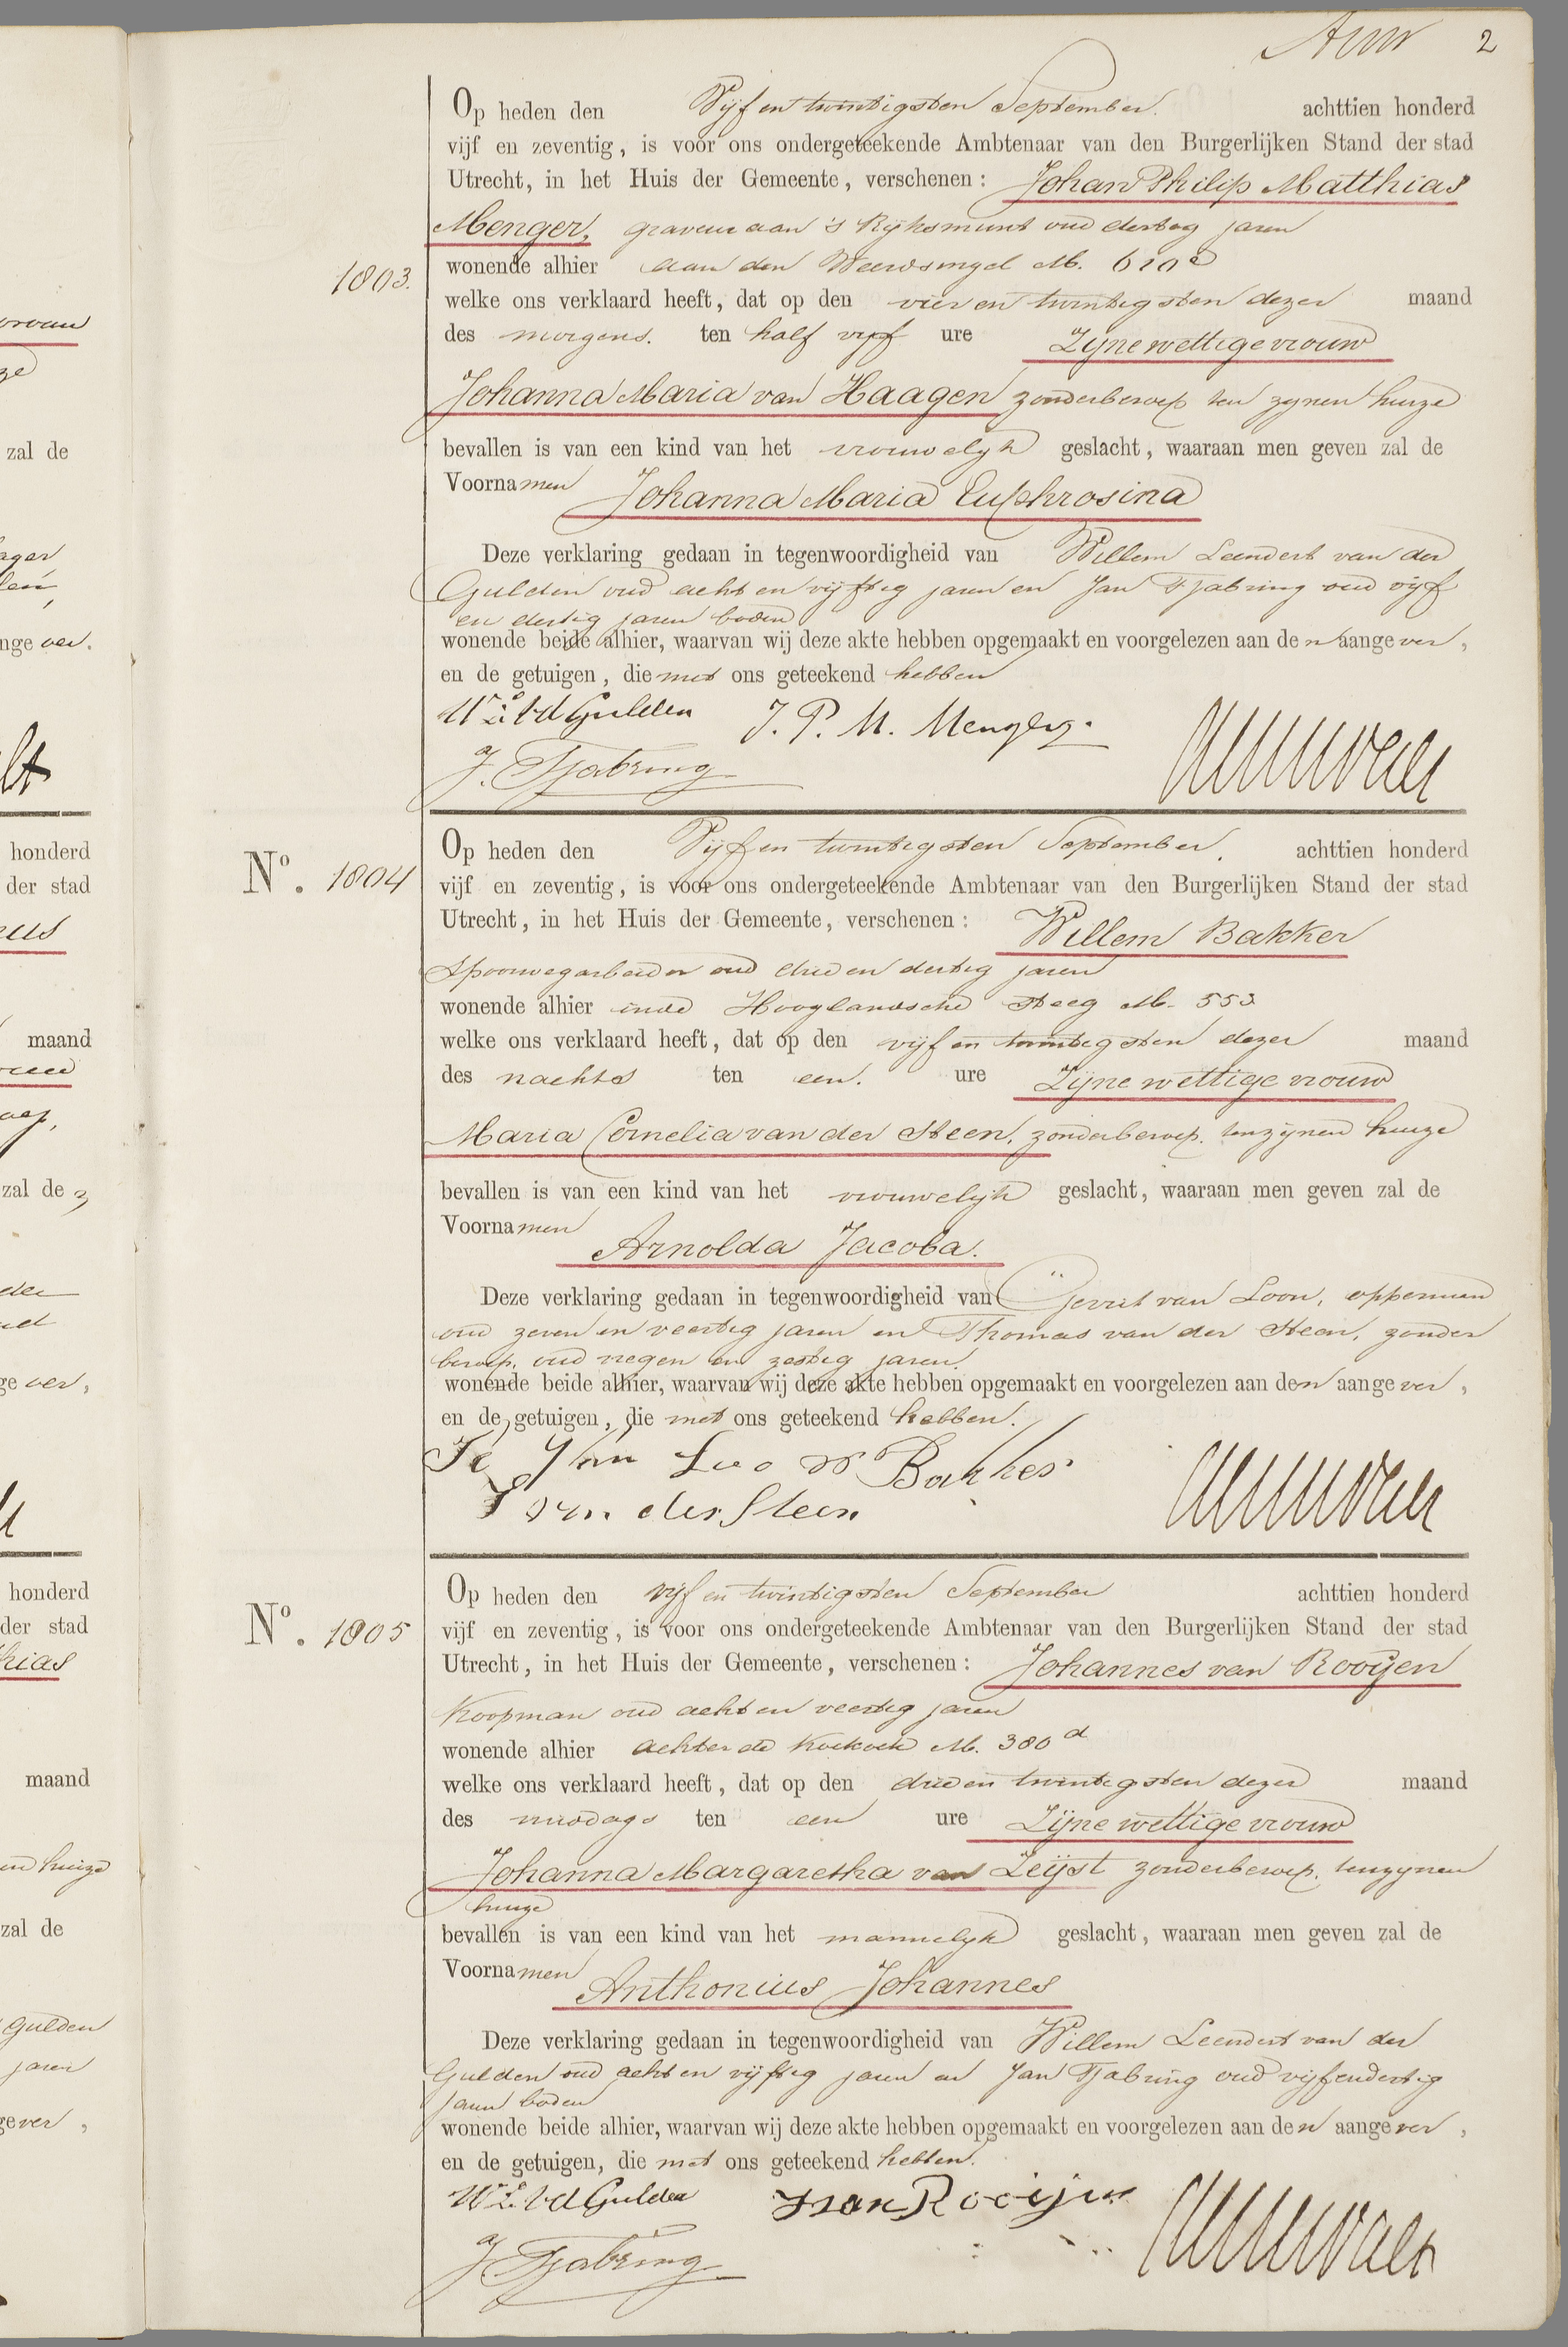 2
Op heden den Vijf en twintigsten September. achttien honderd
vijf en zeventig, is voor ons ondergeteekende Ambtenaar van den Burgerlijken Stand der stad
Utrecht, in het Huis der Gemeente, verschenen: Johan Philip Matthias
Menger, graveur aan 's Rijksmunt oud dertig jaren
1803.
wonende alhier aan den Weerdsingel M.
welke ons verklaard heeft, dat op den vier en twintigsten dezer maand
des morgens. ten half vijf ure Zijne wettige vrouw
Johanna Maria van Haagen zonder beroep ten zijnen huize
bevallen is van een kind van het vrouwelijk geslacht, waaraan men geven zal de
Voornamen Johanna Maria Euphrosina
Deze verklaring gedaan in tegenwoordigheid van Willem Leendert van der
Gulden oud acht en vijftig jaren en Jan Tjabring oud vijf
en dertig jaren boden
wonende beide alhier, waarvan wij deze akte hebben opgemaakt en voorgelezen aan den aangever,
en de getuigen, die met ons geteekend hebben
W L vd Gulden J. P. M. Menger
J. Tjabring
No. 1804
Op heden den Vijf en twintigsten September. achttien honderd
vijf en zeventig, is voor ons ondergeteekende Ambtenaar van den Burgerlijken Stand der stad
Utrecht, in het Huis der Gemeente, verschenen: Willem Bakker
Spoorwegarbeider oud drie en dertig jaren
wonende alhier in de Hooglandsche Steeg M. 553
welke ons verklaard heeft, dat op den vijf en twintigsten dezer maand
des nachts ten een. ure Zijne wettige vrouw
Maria Cornelia van der Steen, zonder beroep. ten zijnen huize
bevallen is van een kind van het vrouwelijk geslacht, waaraan men geven zal de
Voornamen Arnolda Jacoba.
Deze verklaring gedaan in tegenwoordigheid van Gerrit van Loon, opperman
oud zeven en veertig jaren en Thomas van der Steen, zonder
beroep, oud negen en zestig jaren.
wonende beide alhier, waarvan wij deze akte hebben opgemaakt en voorgelezen aan den aangever,
en de getuigen, die met ons geteekend hebben.
W Bakker
T van der Steen
No. 1805
Op heden den vijf en twintigsten September achttien honderd
vijf en zeventig, is voor ons ondergeteekende Ambtenaar van den Burgerlijken Stand der stad
Utrecht, in het Huis der Gemeente, verschenen: Johannes van Rooijen
Koopman oud acht en veertig jaren
wonende alhier achter de Koekoek M. 380 d
welke ons verklaard heeft, dat op den drie en twintigsten dezer maand
des middags ten een ure Zijne wettige vrouw
Johanna Margaretha van Zeijst zonder beroep. ten zijnen
huize
bevallen is van een kind van het mannelijk geslacht, waaraan men geven zal de
Voornamen Anthonius Johannes
Deze verklaring gedaan in tegenwoordigheid van Willem Leendert van der
Gulden oud acht en vijftig jaren en Jan Tjabring oud vijfendertig
jaren boden
wonende beide alhier, waarvan wij deze akte hebben opgemaakt en voorgelezen aan den aangever,
en de getuigen, die met ons geteekend hebben.
W L vd Gulden J van Rooijen
J Tjabring